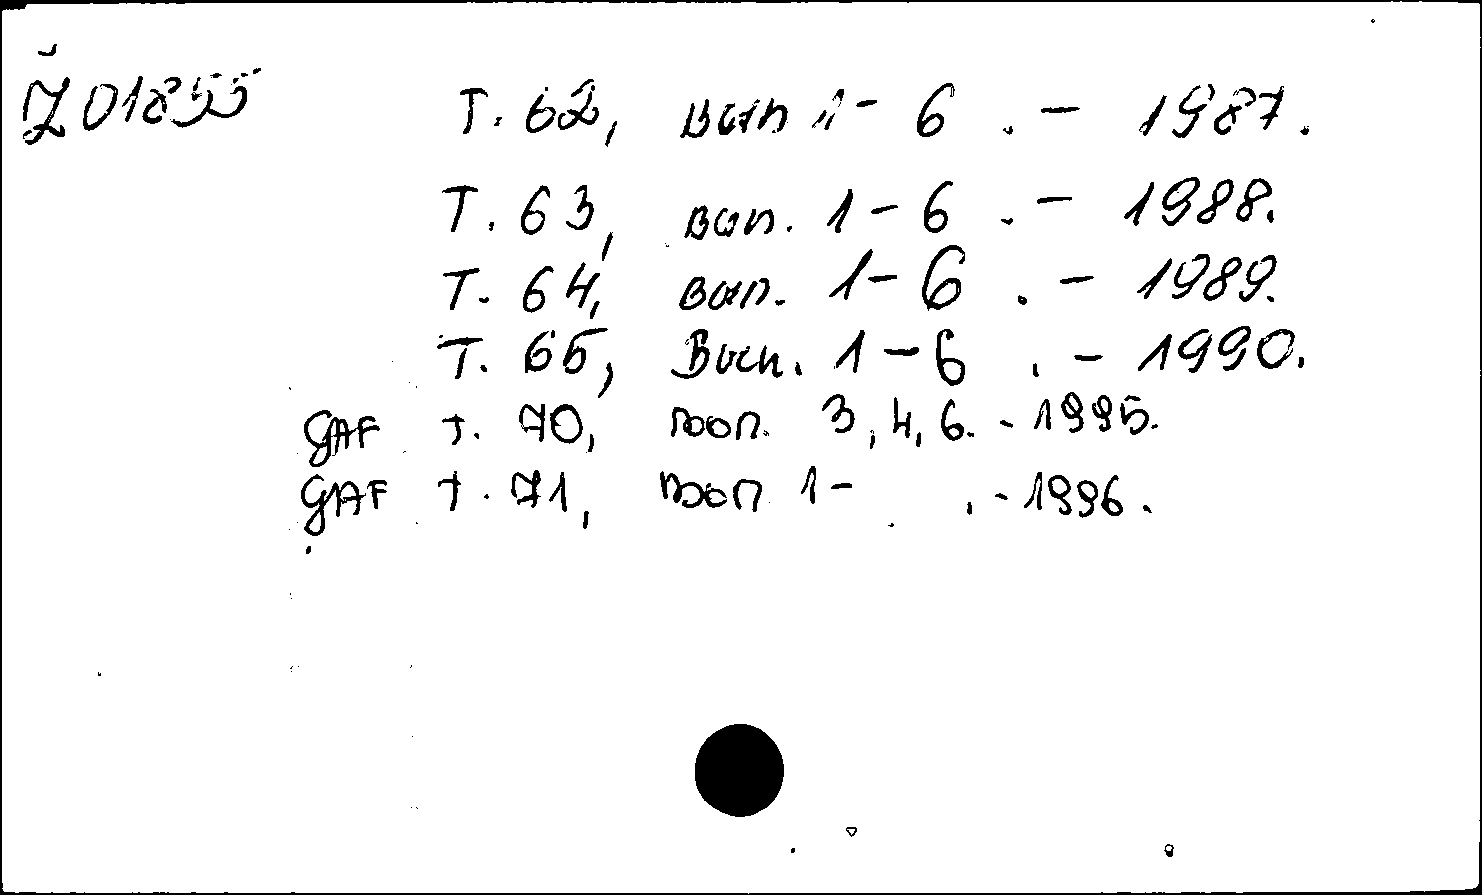 Ž01855 Т. 62, вып 1-6 . - 1987.
Т. 63, вып. 1-6 . - 1988.
Т. 64, вып. 1-6 . - 1989.
Т. 65, Вып. 1-6 . - 1990.
GAF т. 70, вып. 3,4,6. - 1995.
GAF т. 71, вып 1- . - 1996.